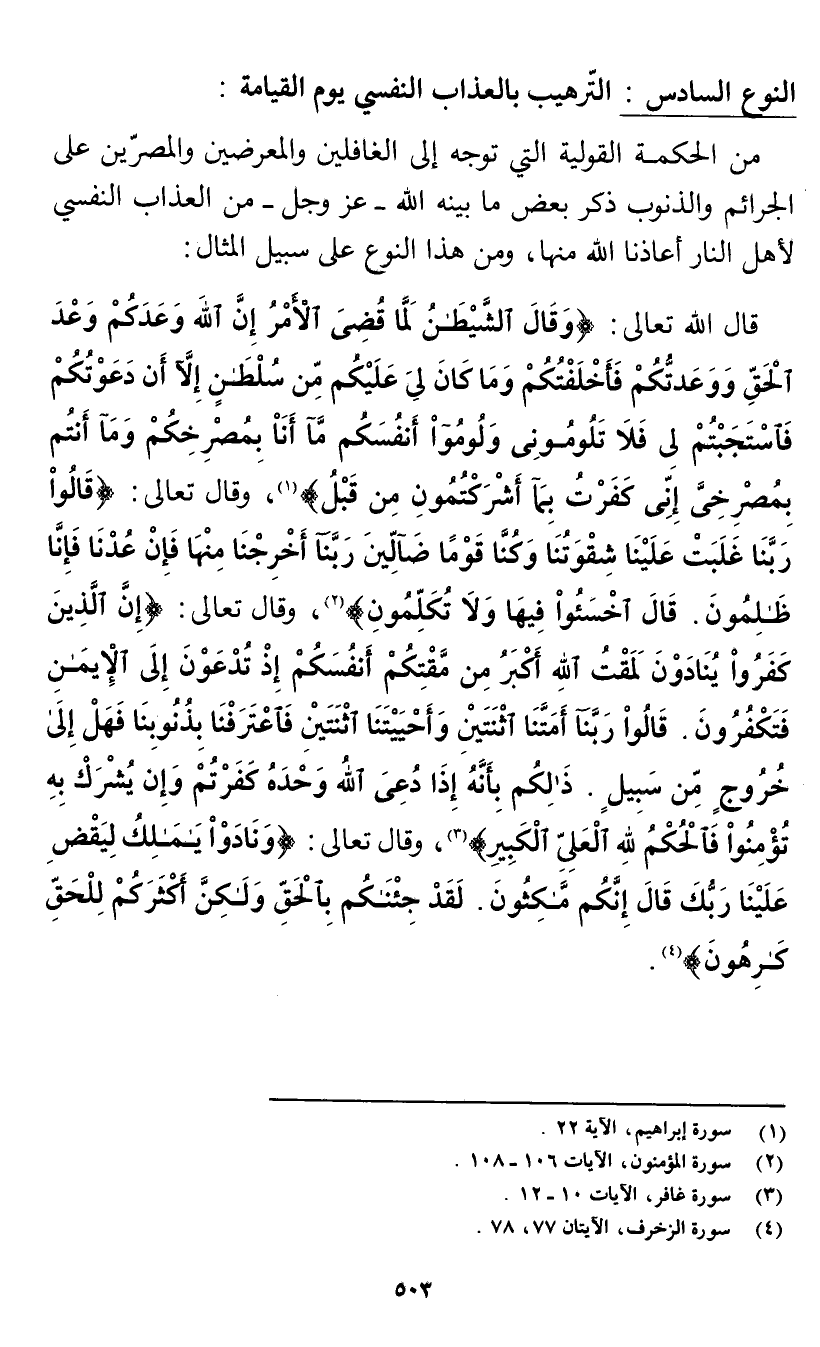 النوع السادس : التّرهيب بالعذاب النفسي يوم القيامة :
من الحكمة القولية التي توجه إلى الغافلين والمعرضين والمصرّين على
الجرائم والذنوب ذكر بعض ما بينه الله ـ عز وجل ـ من العذاب النفسي
لأهل النار أعاذنا الله منها، ومن هذا النوع على سبيل المثال:
قال الله تعالى: ﴿وَقَالَ ٱلشَّيْطَـٰنُ لَمَّا قُضِىَ ٱلْأَمْرُ إِنَّ ٱللَّهَ وَعَدَكُمْ وَعْدَ
ٱلْحَقِّ وَوَعَدتُّكُمْ فَأَخْلَفْتُكُمْ وَمَا كَانَ لِيَ عَلَيْكُم مِّن سُلْطَـٰنٍ إِلَّآ أَن دَعَوْتُكُمْ
فَٱسْتَجَبْتُمْ لِى فَلَا تَلُومُونِى وَلُومُوٓاْ أَنفُسَكُم مَّآ أَنَاْ بِمُصْرِخِكُمْ وَمَآ أَنتُم
بِمُصْرِخِىَّ إِنِّى كَفَرْتُ بِمَآ أَشْرَكْتُمُونِ مِن قَبْلُ﴾(١)، وقال تعالى: ﴿قَالُواْ
رَبَّنَا غَلَبَتْ عَلَيْنَا شِقْوَتُنَا وَكُنَّا قَوْمًا ضَآلِّينَ رَبَّنَآ أَخْرِجْنَا مِنْهَا فَإِنْ عُدْنَا فَإِنَّا
ظَـٰلِمُونَ. قَالَ ٱخْسَئُواْ فِيهَا وَلَا تُكَلِّمُونِ﴾(٢)، وقال تعالى: ﴿إِنَّ ٱلَّذِينَ
كَفَرُواْ يُنَادَوْنَ لَمَقْتُ ٱللَّهِ أَكْبَرُ مِن مَّقْتِكُمْ أَنفُسَكُمْ إِذْ تُدْعَوْنَ إِلَى ٱلْإِيمَـٰنِ
فَتَكْفُرُونَ. قَالُواْ رَبَّنَآ أَمَتَّنَا ٱثْنَتَيْنِ وَأَحْيَيْتَنَا ٱثْنَتَيْنِ فَٱعْتَرَفْنَا بِذُنُوبِنَا فَهَلْ إِلَىٰ
خُرُوجٍ مِّن سَبِيلٍ. ذَٰلِكُم بِأَنَّهُ إِذَا دُعِىَ ٱللَّهُ وَحْدَهُ كَفَرْتُمْ وَإِن يُشْرَكْ بِهِ
تُؤْمِنُواْ فَٱلْحُكْمُ لِلَّهِ ٱلْعَلِىِّ ٱلْكَبِيرِ﴾(٣)، وقال تعالى: ﴿وَنَادَوْاْ يَـٰمَـٰلِكُ لِيَقْضِ
عَلَيْنَا رَبُّكَ قَالَ إِنَّكُم مَّـٰكِثُونَ. لَقَدْ جِئْنَـٰكُم بِٱلْحَقِّ وَلَـٰكِنَّ أَكْثَرَكُمْ لِلْحَقِّ
كَـٰرِهُونَ﴾(٤).
(١) سورة إبراهيم، الآية ٢٢ .
(٢) سورة المؤمنون، الآيات ١٠٦ ـ ١٠٨ .
(٣) سورة غافر، الآيات ١٠ ـ ١٢ .
(٤) سورة الزخرف، الآيتان ٧٧، ٧٨ .
٥٠٣